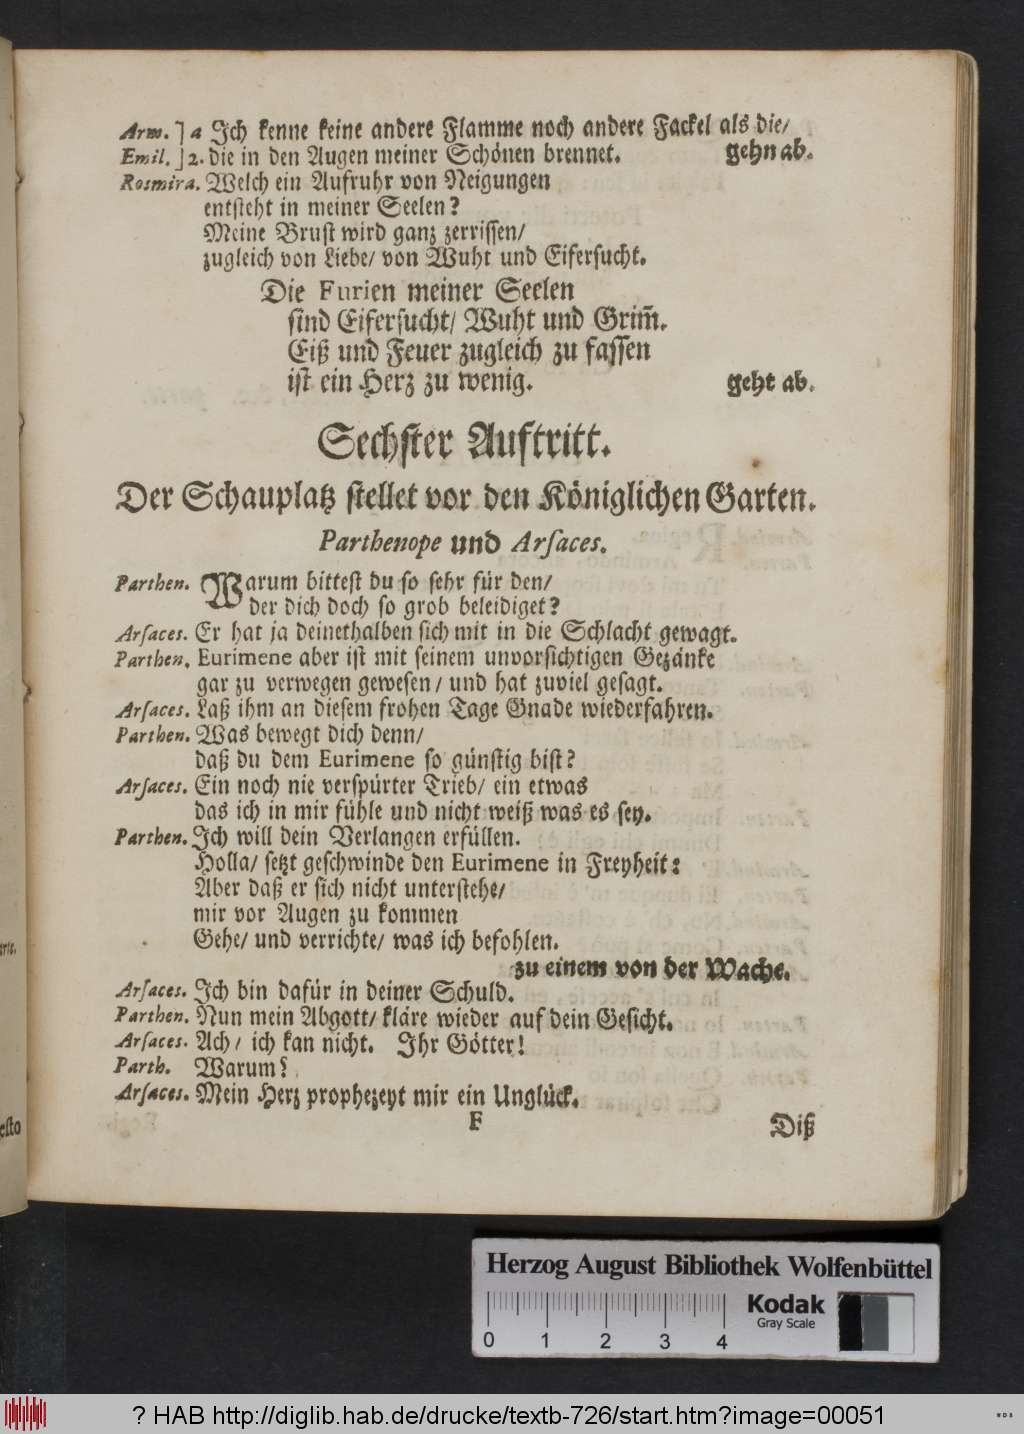 Arm. ] a Ich kenne keine andere Flamme noch andere Fackel als die/
Emil. ] 2. die in den Augen meiner Schönen brennet. gehn ab.
Rosmira. Welch ein Aufruhr von Neigungen
entsteht in meiner Seelen?
Meine Brust wird ganz zerrissen/
zugleich von Liebe/ von Wuht und Eifersucht.
Die Furien meiner Seelen
sind Eifersucht/ Wuht und Grim̃.
Eiß und Feuer zugleich zu fassen
ist ein Herz zu wenig. geht ab.
Sechster Auftritt.
Der Schauplatz stellet vor den Königlichen Garten.
Parthenope und Arſaces.
Parthen. Warum bittest du so sehr für den/
der dich doch so grob beleidiget?
Arſaces. Er hat ja deinethalben sich mit in die Schlacht gewagt.
Parthen. Eurimene aber ist mit seinem unvorsichtigen Gezänke
gar zu verwegen gewesen/ und hat zuviel gesagt.
Arſaces. Laß ihm an diesem frohen Tage Gnade wiederfahren.
Parthen. Was bewegt dich denn/
daß du dem Eurimene so günstig bist?
Arſaces. Ein noch nie verspürter Trieb/ ein etwas
das ich in mir fühle und nicht weiß was es sey.
Parthen. Ich will dein Verlangen erfüllen.
Holla/ setzt geschwinde den Eurimene in Freyheit:
Aber daß er sich nicht unterstehe/
mir vor Augen zu kommen
Gehe/ und verrichte/ was ich befohlen.
zu einem von der Wache.
Arſaces. Ich bin dafür in deiner Schuld.
Parthen. Nun mein Abgott/ kläre wieder auf dein Gesicht.
Arſaces. Ach/ ich kan nicht. Ihr Götter!
Parth. Warum?
Arſaces. Mein Herz prophezeyt mir ein Unglück.
F Diß
Herzog August Bibliothek Wolfenbüttel
0 1 2 3 4
Kodak
Gray Scale
? HAB http://diglib.hab.de/drucke/textb-726/start.htm?image=00051